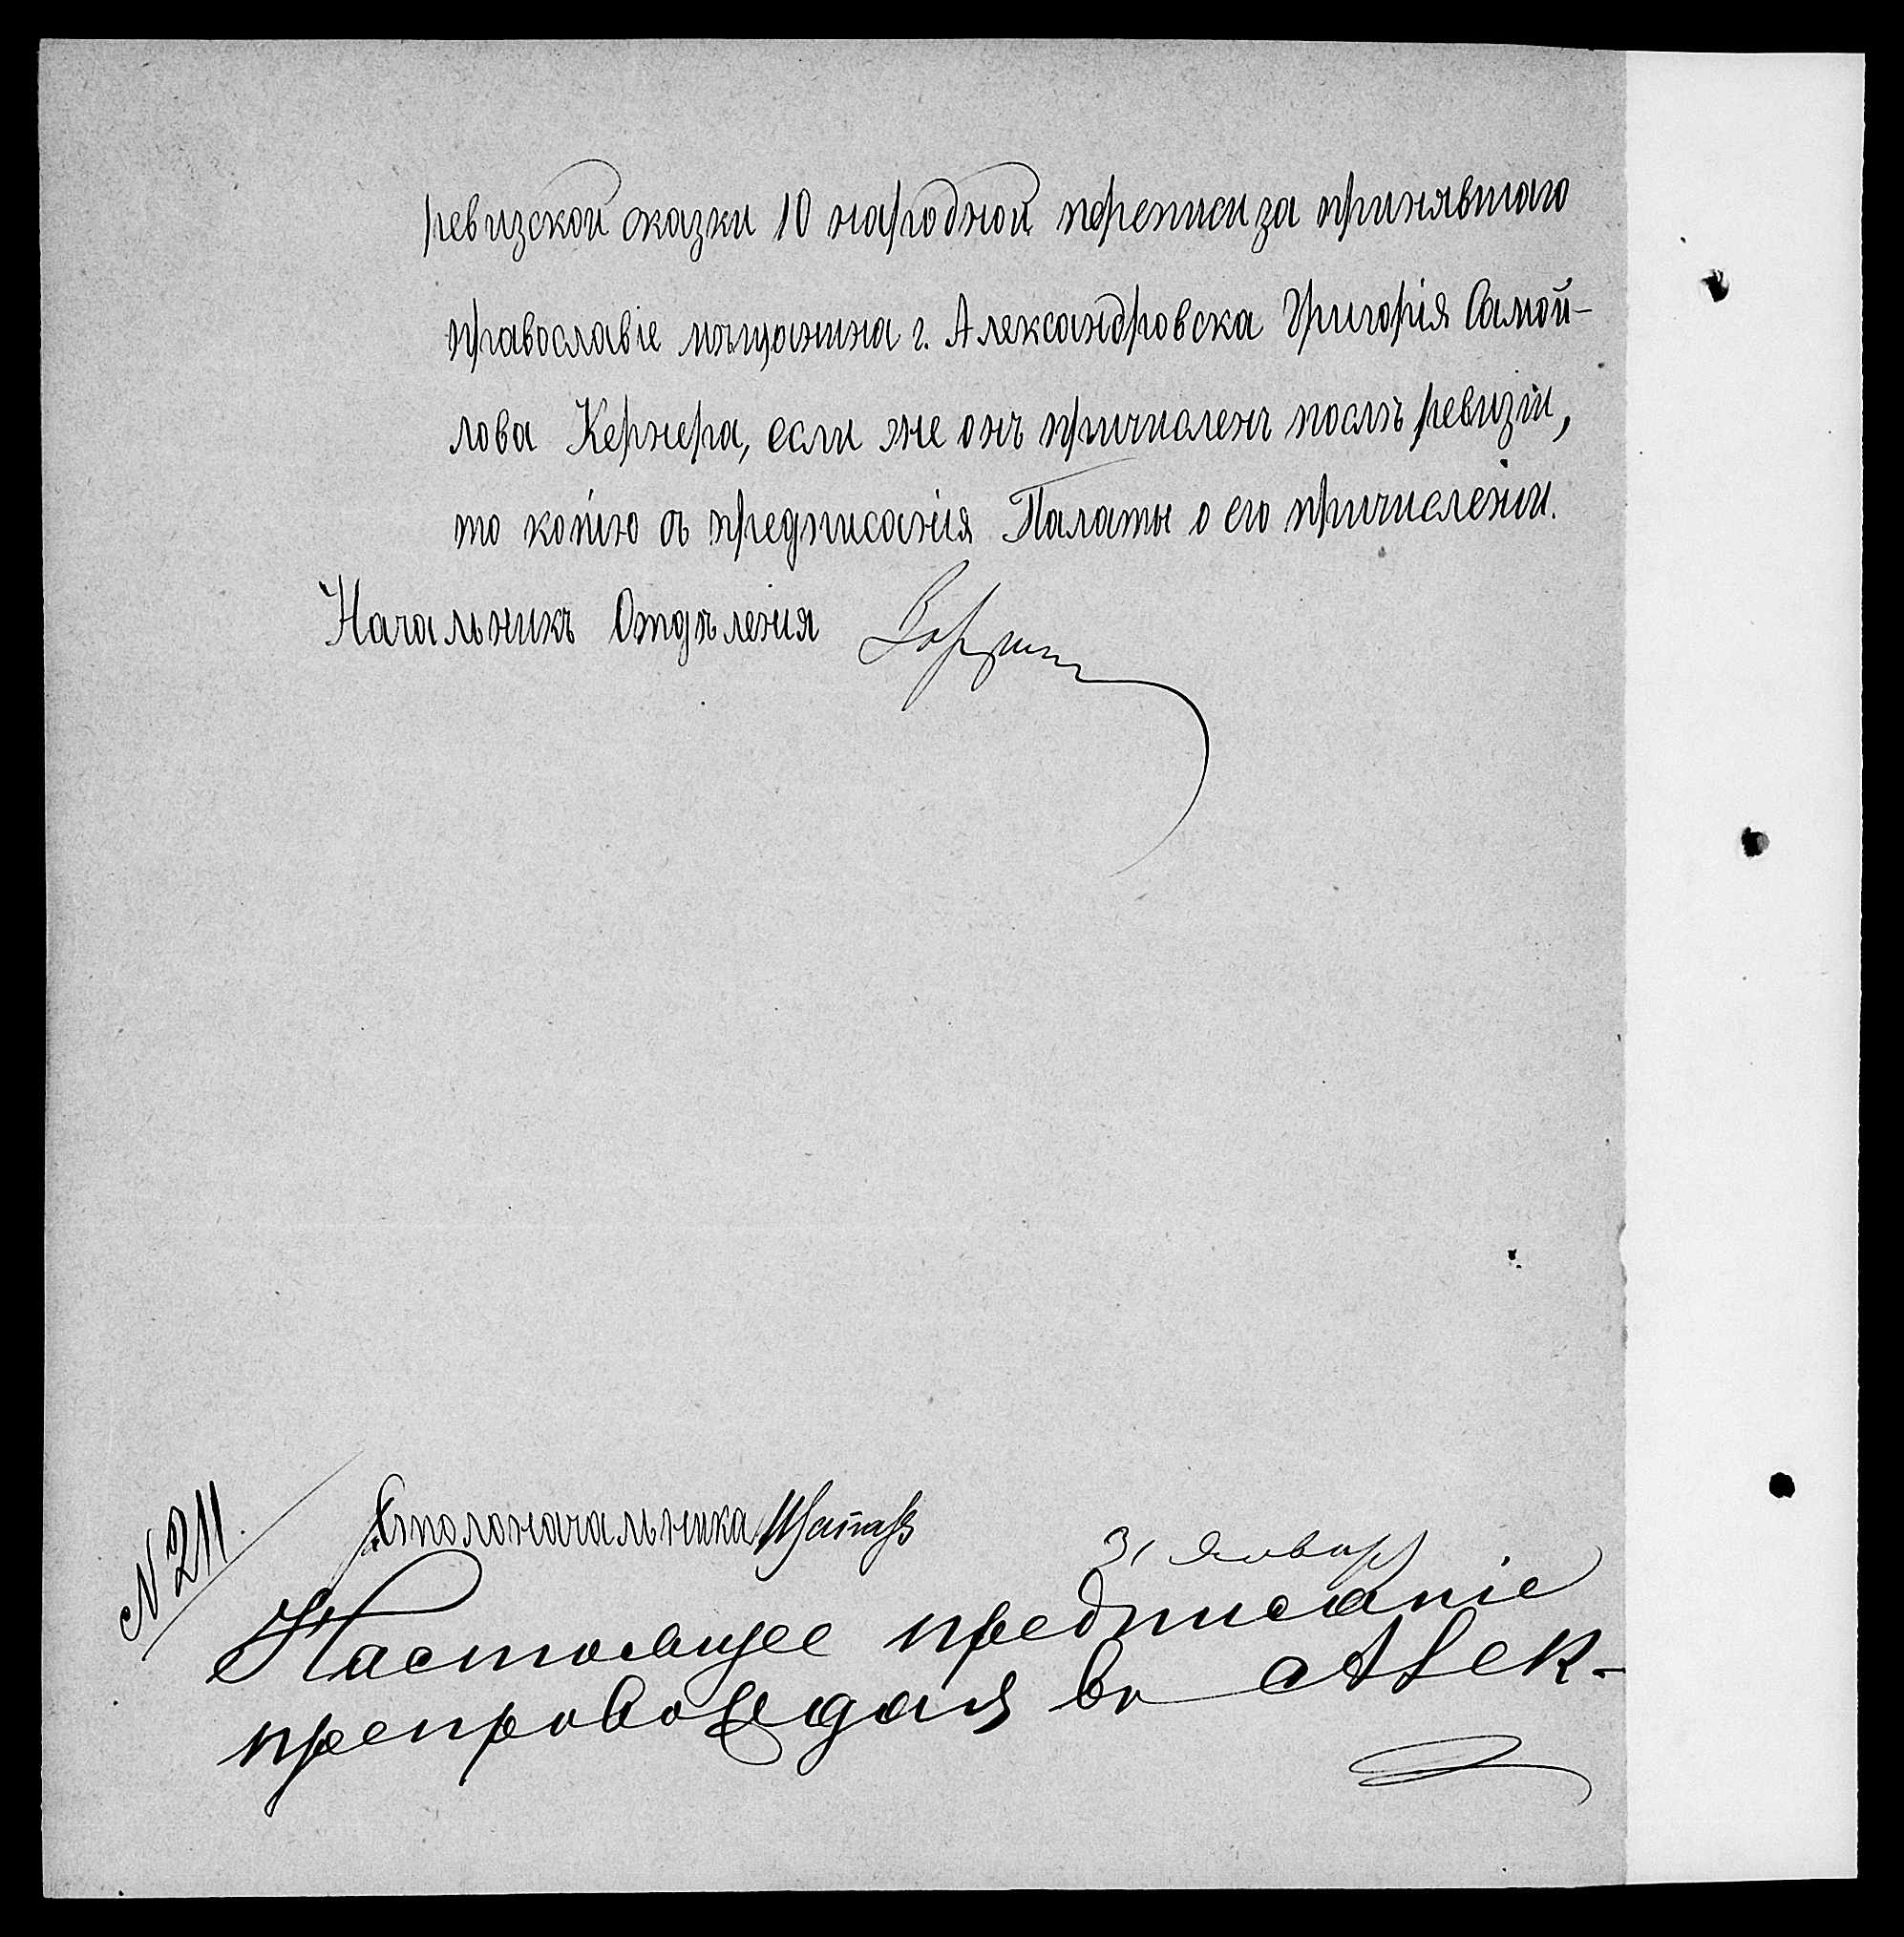 ревизской сказки 10 народной переписи за принявшаго
православіе мѣщанина г. Александровска Григорія Самой-
лова Кернера, если же онъ причисленъ послѣ ревизіи,
то копію съ предписанія Палаты о его причисленіи.
Начальникъ Отдѣленія
Столоначальника
N 211.
31 Январ
Настоящее предписаніе
препровождая въ Алек-